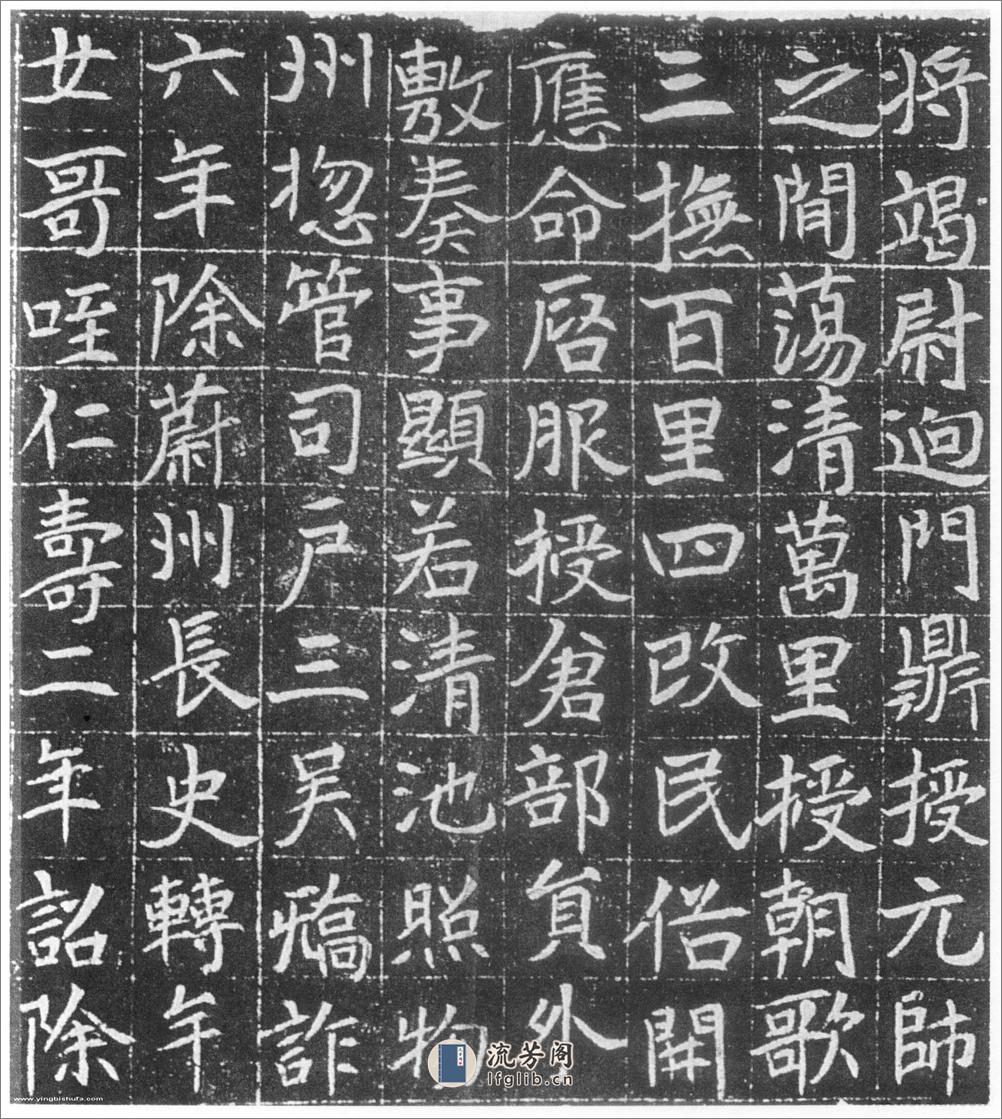 将竭尉逈門鼎授元帥
之間蕩清萬里授朝歌
三撫百里四改民俗開
應命啓服授倉部員外
敷奏事顯若清池照物
州揔管司户三吴矯詐
六年除蔚州長史轉午
女哥咥仁壽二年詔除
流芳阁
lfglib.cn
www.yingbishufa.com